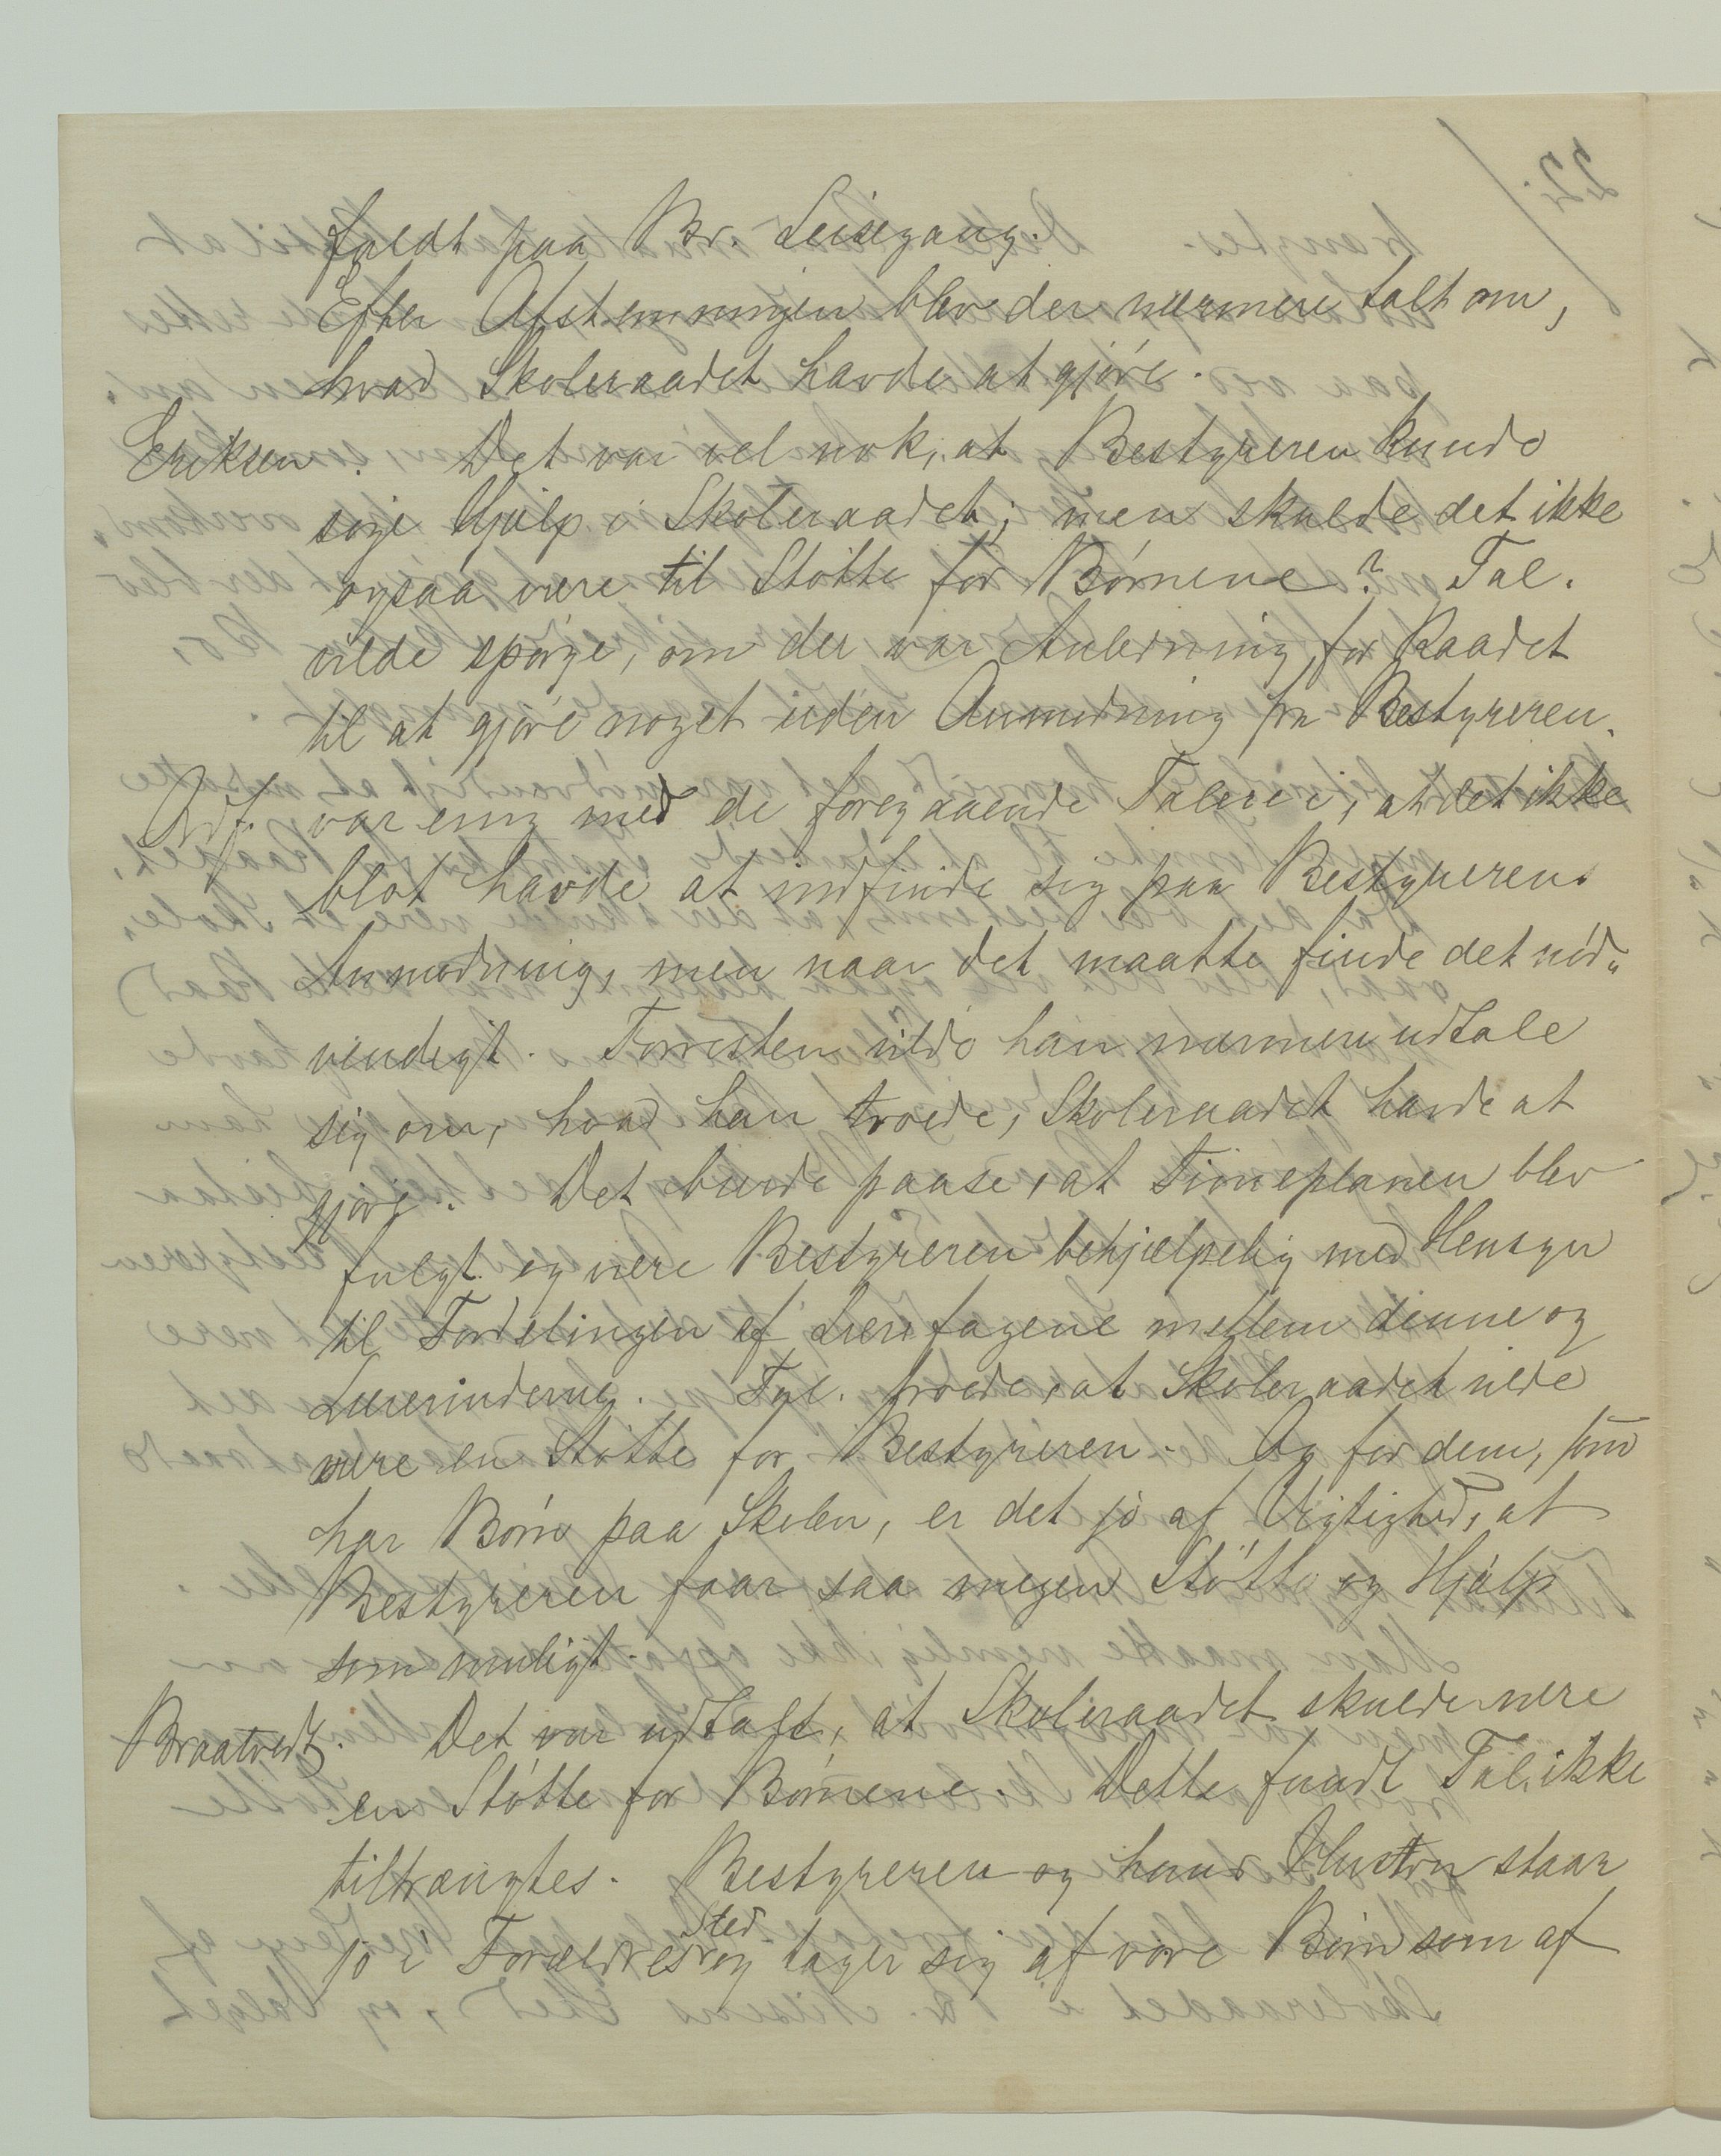 faldt paa Br. Leisegang.
Efter Afstemningen blev der nærmere talt om,
hvad Skoleraadet havde at gjøre.
Eriksen. Det var vel nok, at Bestyreren kunde
søge Hjælp i Skoleraadet; men skulde det ikke
ogsaa være til Støtte for Børnene? Tal.
vilde spørge, om der var Anledning for Raadet
til at gjøre noget uden Anmodning fra Bestyreren.
Ordf. var enig med de foregaaende Talere i, at det ikke
blot havde at indfinde sig paa Bestyrerens
Anmodning, men naar det maatte finde det nød-
vendigt. Forresten vilde han nærmere udtale
sig om, hvad han troede, Skoleraadet havde at
gjøre. Det burde paase, at Timeplanen blev
fulgt og være Bestyreren behjælpelig med Hensyn
til Fordelingen af Lærefagene mellem denne og
Lærerinderne. Tal. troede, at Skoleraadet vilde
være en Støtte for Bestyreren. Og for dem, som
har Børn paa Skolen, er det jo af Vigtighed, at
Bestyreren faar saa megen Støtte og Hjælp
som muligt.
Braatvedt. Det var udtalt, at Skoleraadet skulde være
en Støtte for Børnene. Dette fandt Tal. ikke
tiltrængtes. Bestyreren og hans Hustru staar
jo i Forældres sted og tager sig af vore Børn som af